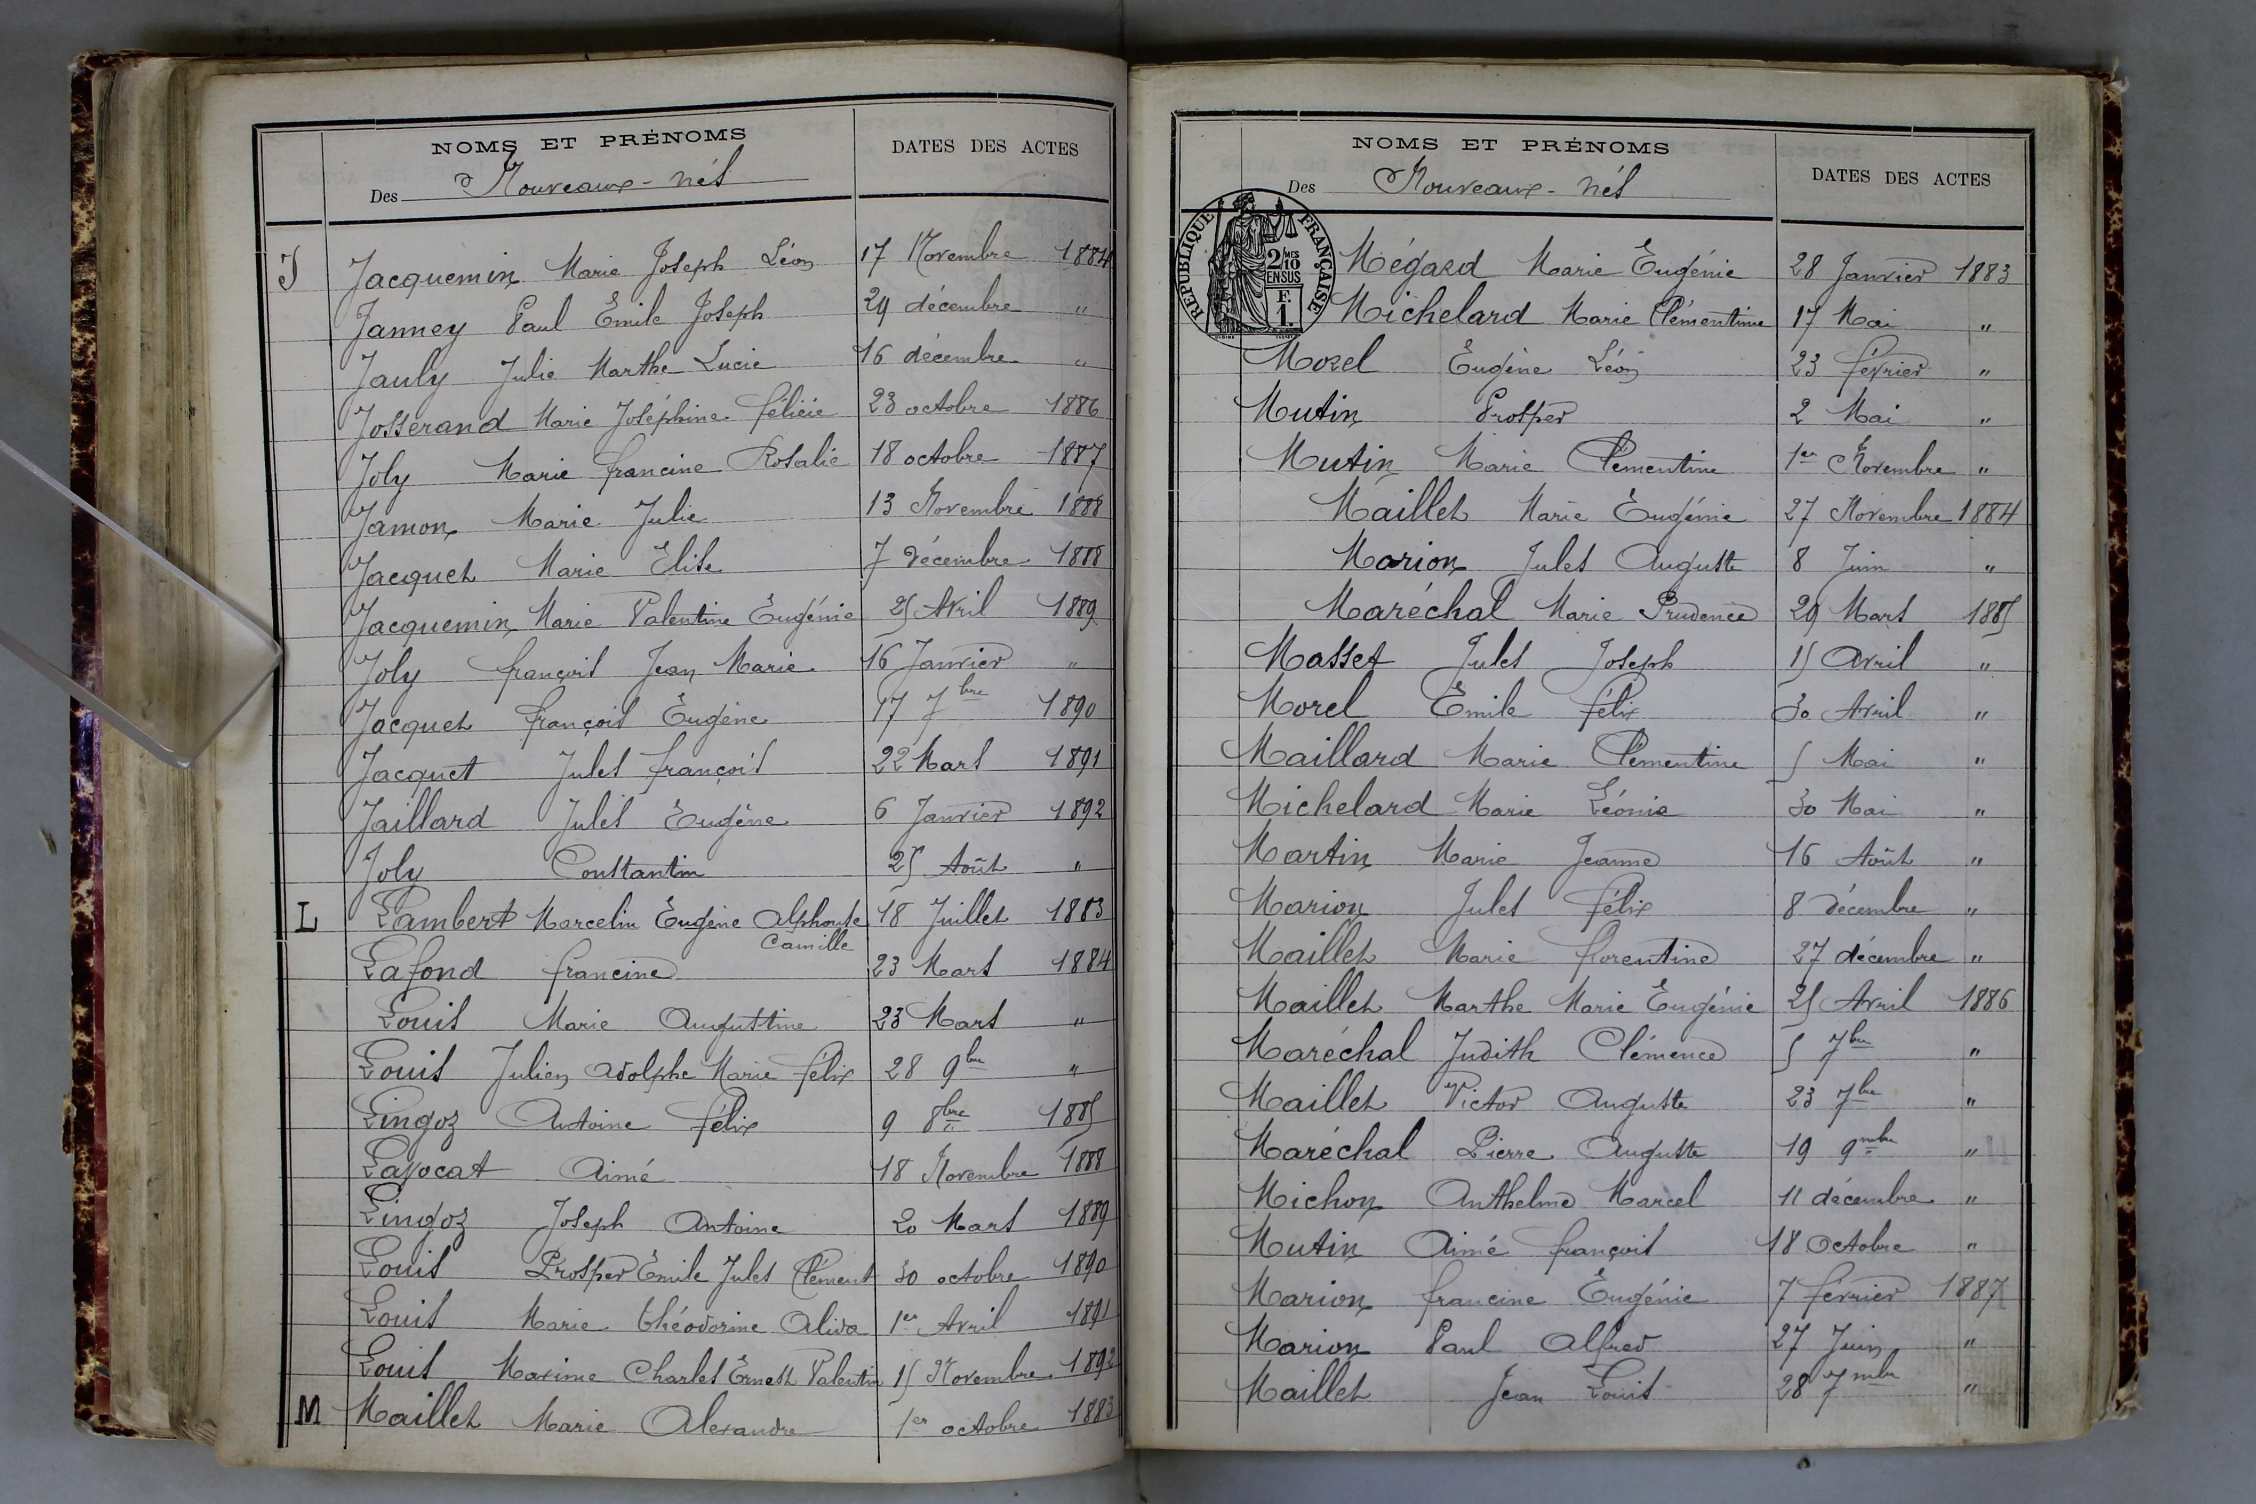 NOMS ET PRÉNOMS DATES DES ACTES
Des Nouveaux-nés
J Jacquemin Marie Joseph Léon 17 Novembre 1884
Janney Paul Emile Joseph 29 décembre "
Jauly Julie Marthe Lucie 16 décembre "
Josserand Marie Joséphine félicie 23 octobre 1886
Joly Marie francine Rosalie 18 octobre 1887
Jamon Marie Julie 13 Novembre 1888
Jacquet Marie Elise 7 décembre 1888
Jacquemin Marie Valentine Eugénie 25 Avril 1889
Joly françois Jean Marie 16 Janvier "
Jacquet françois Eugène 17 7bre 1890
Jacquet Jules françois 22 Mars 1891
Jaillard Jules Eugène 6 Janvier 1892
Joly Constantin 25 Août "
L Lambert Marcelin Eugène Alphonse 18 Juillet 1883
Camille
Lafond francine 23 Mars 1884
Louis Marie Augustine 23 Mars "
Louis Julien Adolphe Marie félix 28 9bre "
Lingoz Antoine félix 9 8bre 1885
Lavocat Aimé 18 Novembre 1888
Lingoz Joseph Antoine 20 Mars 1889
Louis Prosper Emile Jules Clément 30 octobre 1890
Louis Marie théodorine Aliva 1er Avril 1891
Louis Maxime Charles Ernest Valentin 15 Novembre 1892
M Maillet Marie Alexandre 1er octobre 1883
NOMS ET PRÉNOMS DATES DES ACTES
Des Nouveaux-nés
RÉPUBLIQUE FRANÇAISE
2/10MES
EN SUS
F.
1.
Mégard Marie Eugénie 28 Janvier 1883
Michelard Marie Clémentine 17 Mai "
Morel Eugène Léon 23 février "
Mutin Prosper 2 Mai "
Mutin Marie Clémentine 1er Novembre "
Maillet Marie Eugénie 27 Novembre 1884
Marion Jules Auguste 8 Juin "
Maréchal Marie Prudence 29 Mars 1885
Masset Jules Joseph 15 Avril "
Morel Emile félix 30 Avril "
Maillard Marie Clémentine 5 Mai "
Michelard Marie Léonie 30 Mai "
Martin Marie Jeanne 16 Août "
Marion Jules félix 8 décembre "
Maillet Marie florentine 27 décembre "
Maillet Marthe Marie Eugénie 25 Avril 1886
Maréchal Judith Clémence 5 7bre "
Maillet Victor Auguste 23 7bre "
Maréchal Pierre Auguste 19 9mbre "
Michon Anthelme Marcel 11 décembre "
Mutin Aimé françois 18 Octobre "
Marion francine Eugénie 7 février 1887
Marion Paul Alfred 27 Juin "
Maillet Jean Louis 28 7mbre "